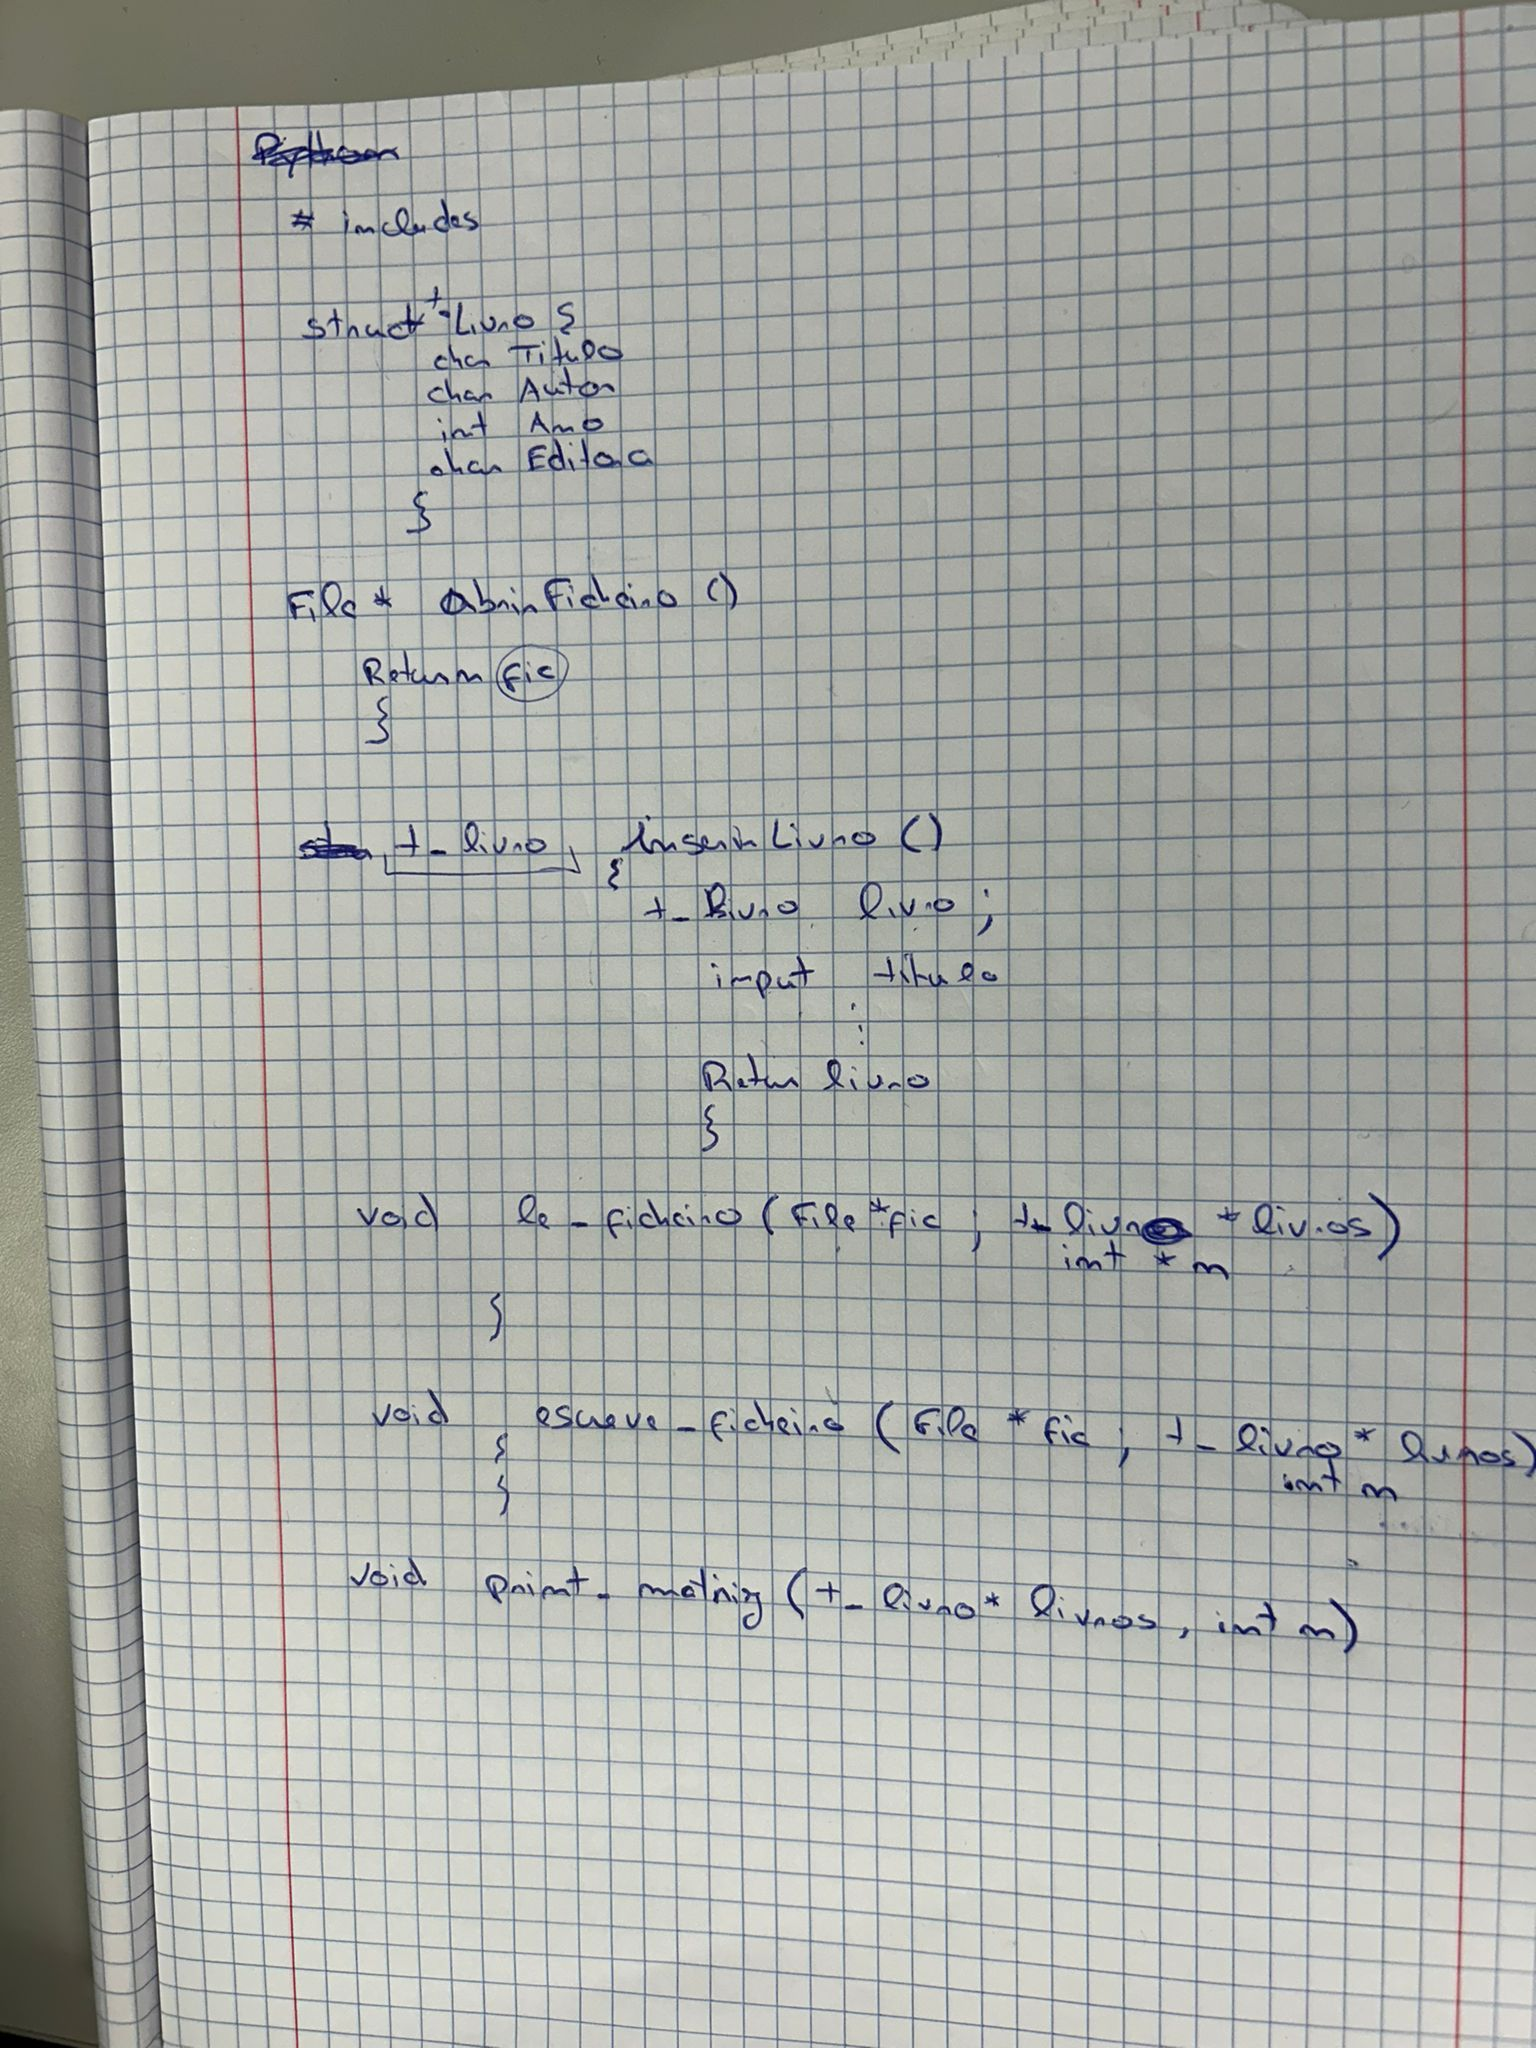 Python
# includes
struct t-Livro {
char Titulo
char Autor
int Ano
char Editora
}
File * AbrirFicheiro ()
Return fic
}
t_livro InserirLivro ()
{
t_Livro livro ;
input titulo
⋮
Retur livro
}
void le_ficheiro (File *fic ; t_livro * livros)
int * n
}
void escreve_ficheiro (File * fic ; t_livro * livros)
{ int n
}
void print_matriz (t_livro * livros, int n)